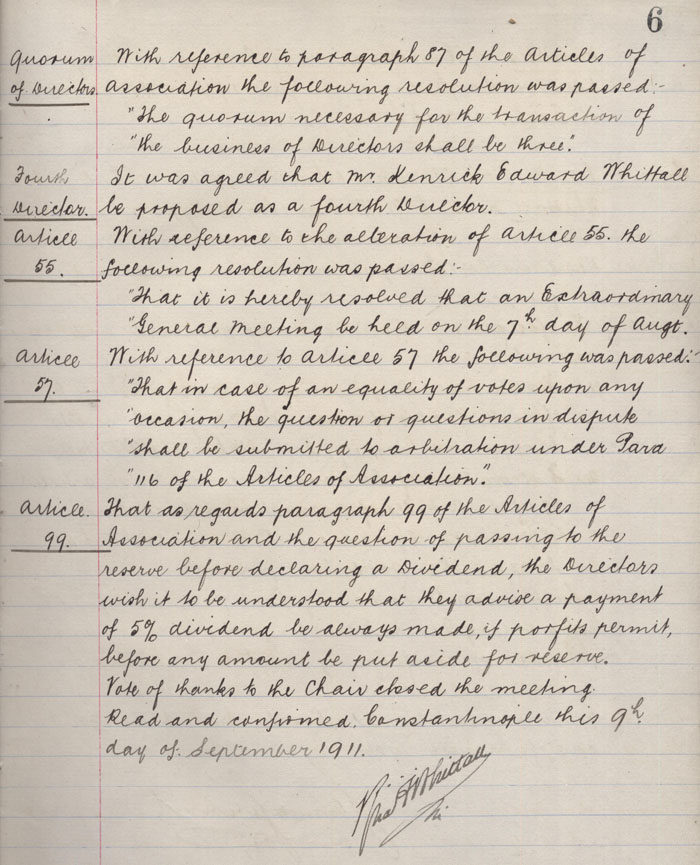 6
Quorum With reference to paragraph 87 of the Articles of
of Directors. Association the following resolution was passed:-
"The quorum necessary for the transaction of
"the business of Directors shall be three".
Fourth It was agreed that Mr. Kenrick Edward Whittall
Director. be proposed as a fourth Director.
Article With reference to the alteration of Article 55. the
55. following resolution was passed:-
"That it is hereby resolved that an Extraordinary
"General Meeting be held on the 7th day of Augt.
Article With reference to Article 57 the following was passed:-
57. "That in case of an equality of votes upon any
"occasion, the question or questions in dispute
"shall be submitted to arbitration under Para
"116 of the Articles of Association."
Article. That as regards paragraph 99 of the Articles of
99. Association and the question of passing to the
reserve before declaring a Dividend, the Directors
wish it to be understood that they advise a payment
of 5% dividend be always made, if porfits permit,
before any amount be put aside for reserve.
Vote of thanks to the Chair closed the meeting.
Read and confirmed. Constantinople this 9th
day of September 1911.
Whittall